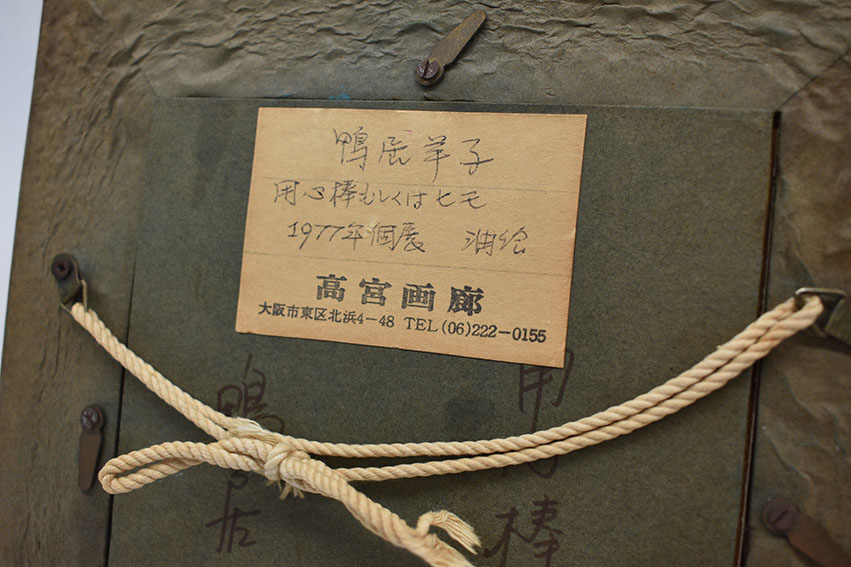 鴨居羊子
用心棒もしくはヒモ
1977年個展 油絵
高宮画廊
大阪市東区北浜4-48 TEL(06)222-0155
用 棒
鴨居